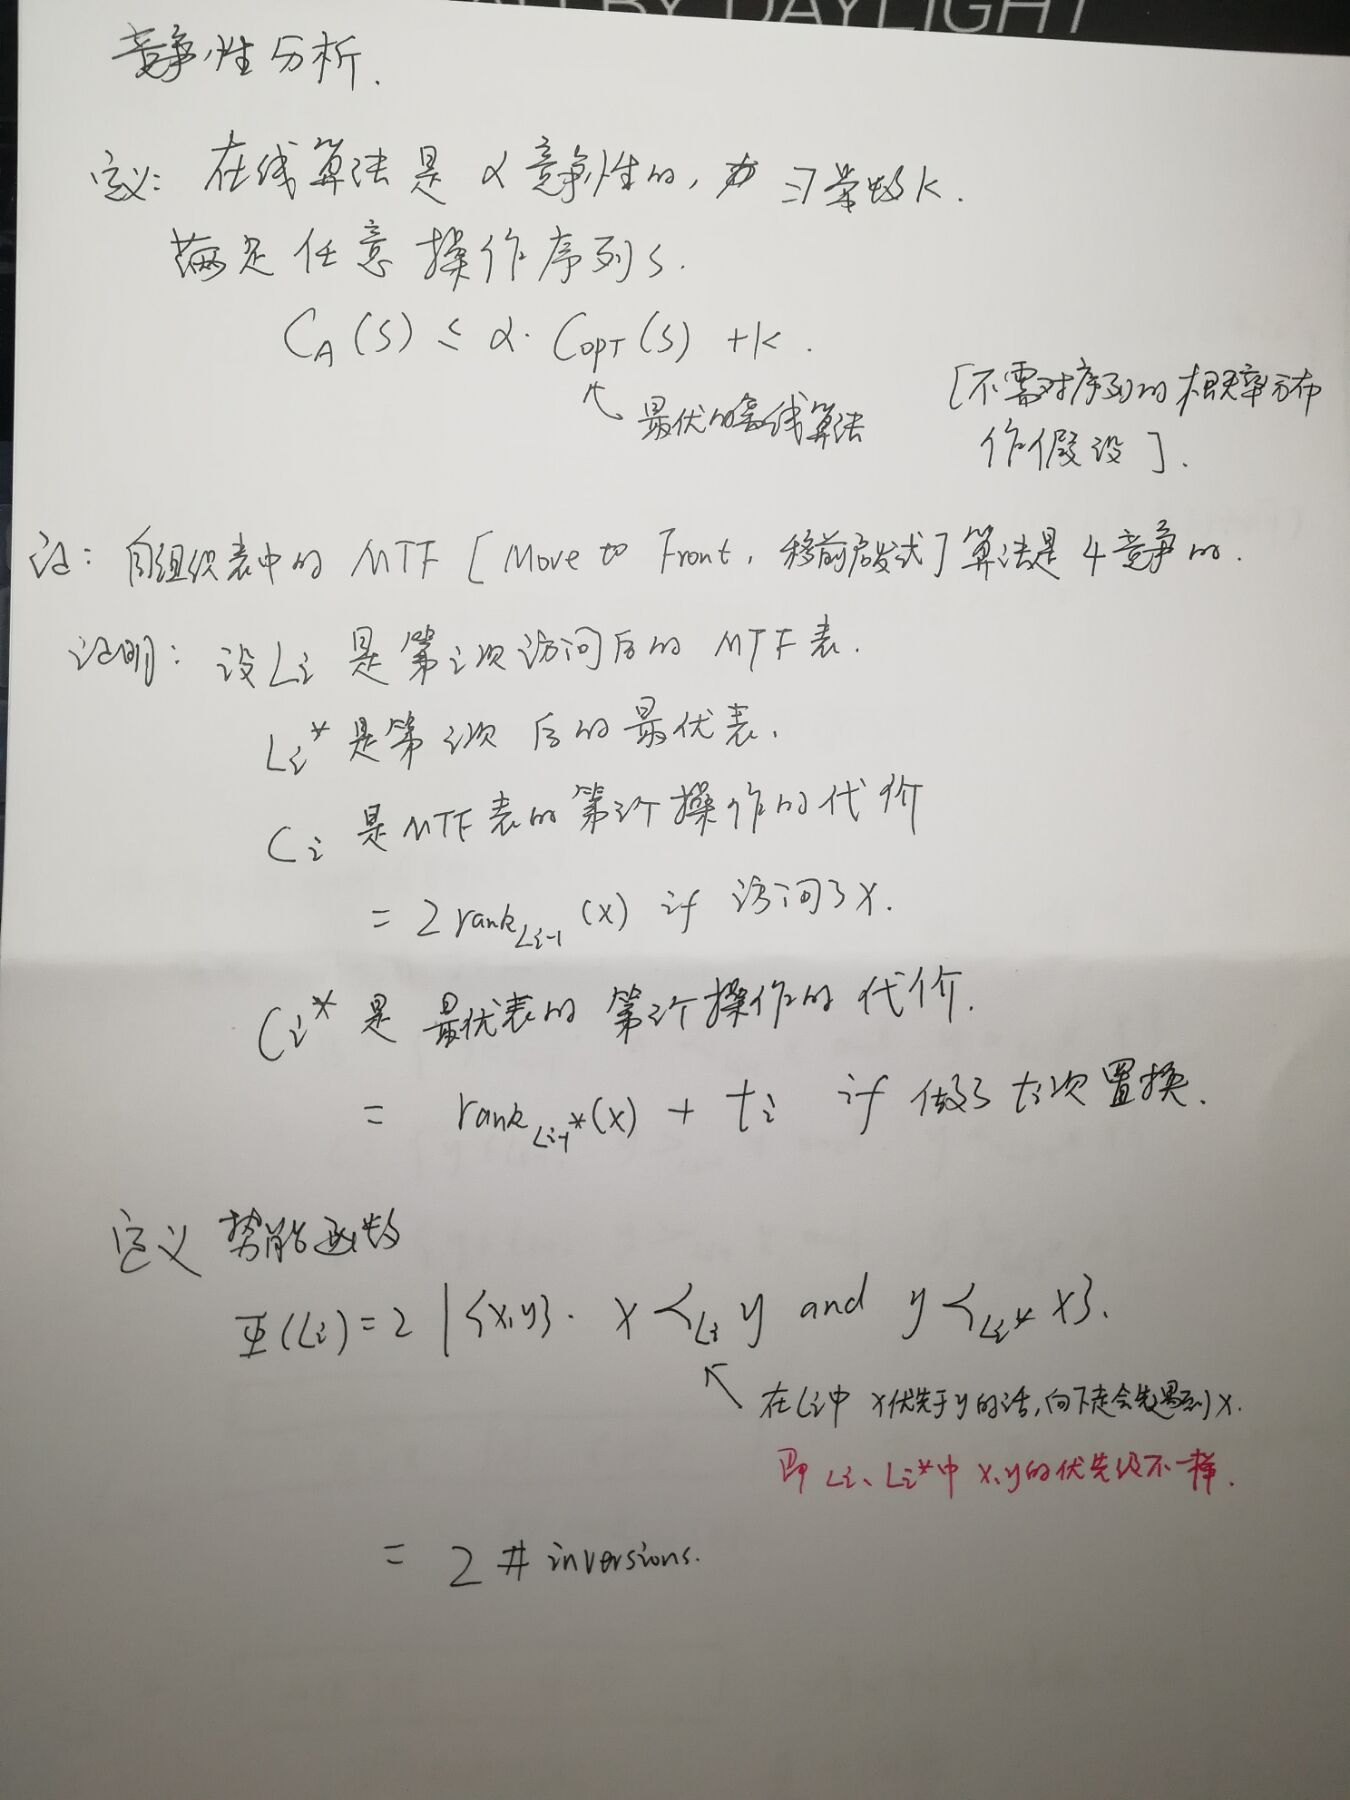 BY DAYLIGHT
竞争性分析.
定义: 在线算法是 α 竞争性的, 为 ∃ 常数 k.
满足 任意 操作序列 S.
C_A(S) ≤ α · C_OPT(S) + k.
最优的离线算法
[不需对序列的概率分布
作假设].
证: 自组织表中的 MTF [Move to Front, 移前启发式] 算法是 4 竞争的.
证明: 设 Li 是第 i 次访问后的 MTF 表.
Li* 是第 i 次 后的最优表.
Ci 是 MTF 表的第 i 个操作的代价
= 2 rank_{Li-1}(x) if 访问了 x.
Ci* 是 最优表的 第 i 个操作的代价.
= rank_{Li-1*}(x) + ti if 做了 ti 次置换.
定义 势能函数
Φ(Li) = 2 |{x,y}. x ≺_{Li} y and y ≺_{Li*} x}.
在 Li 中 x 优先于 y 的话, 向下走会先遇到 x.
即 Li、Li* 中 x、y 的优先级不一样.
= 2 # inversions.